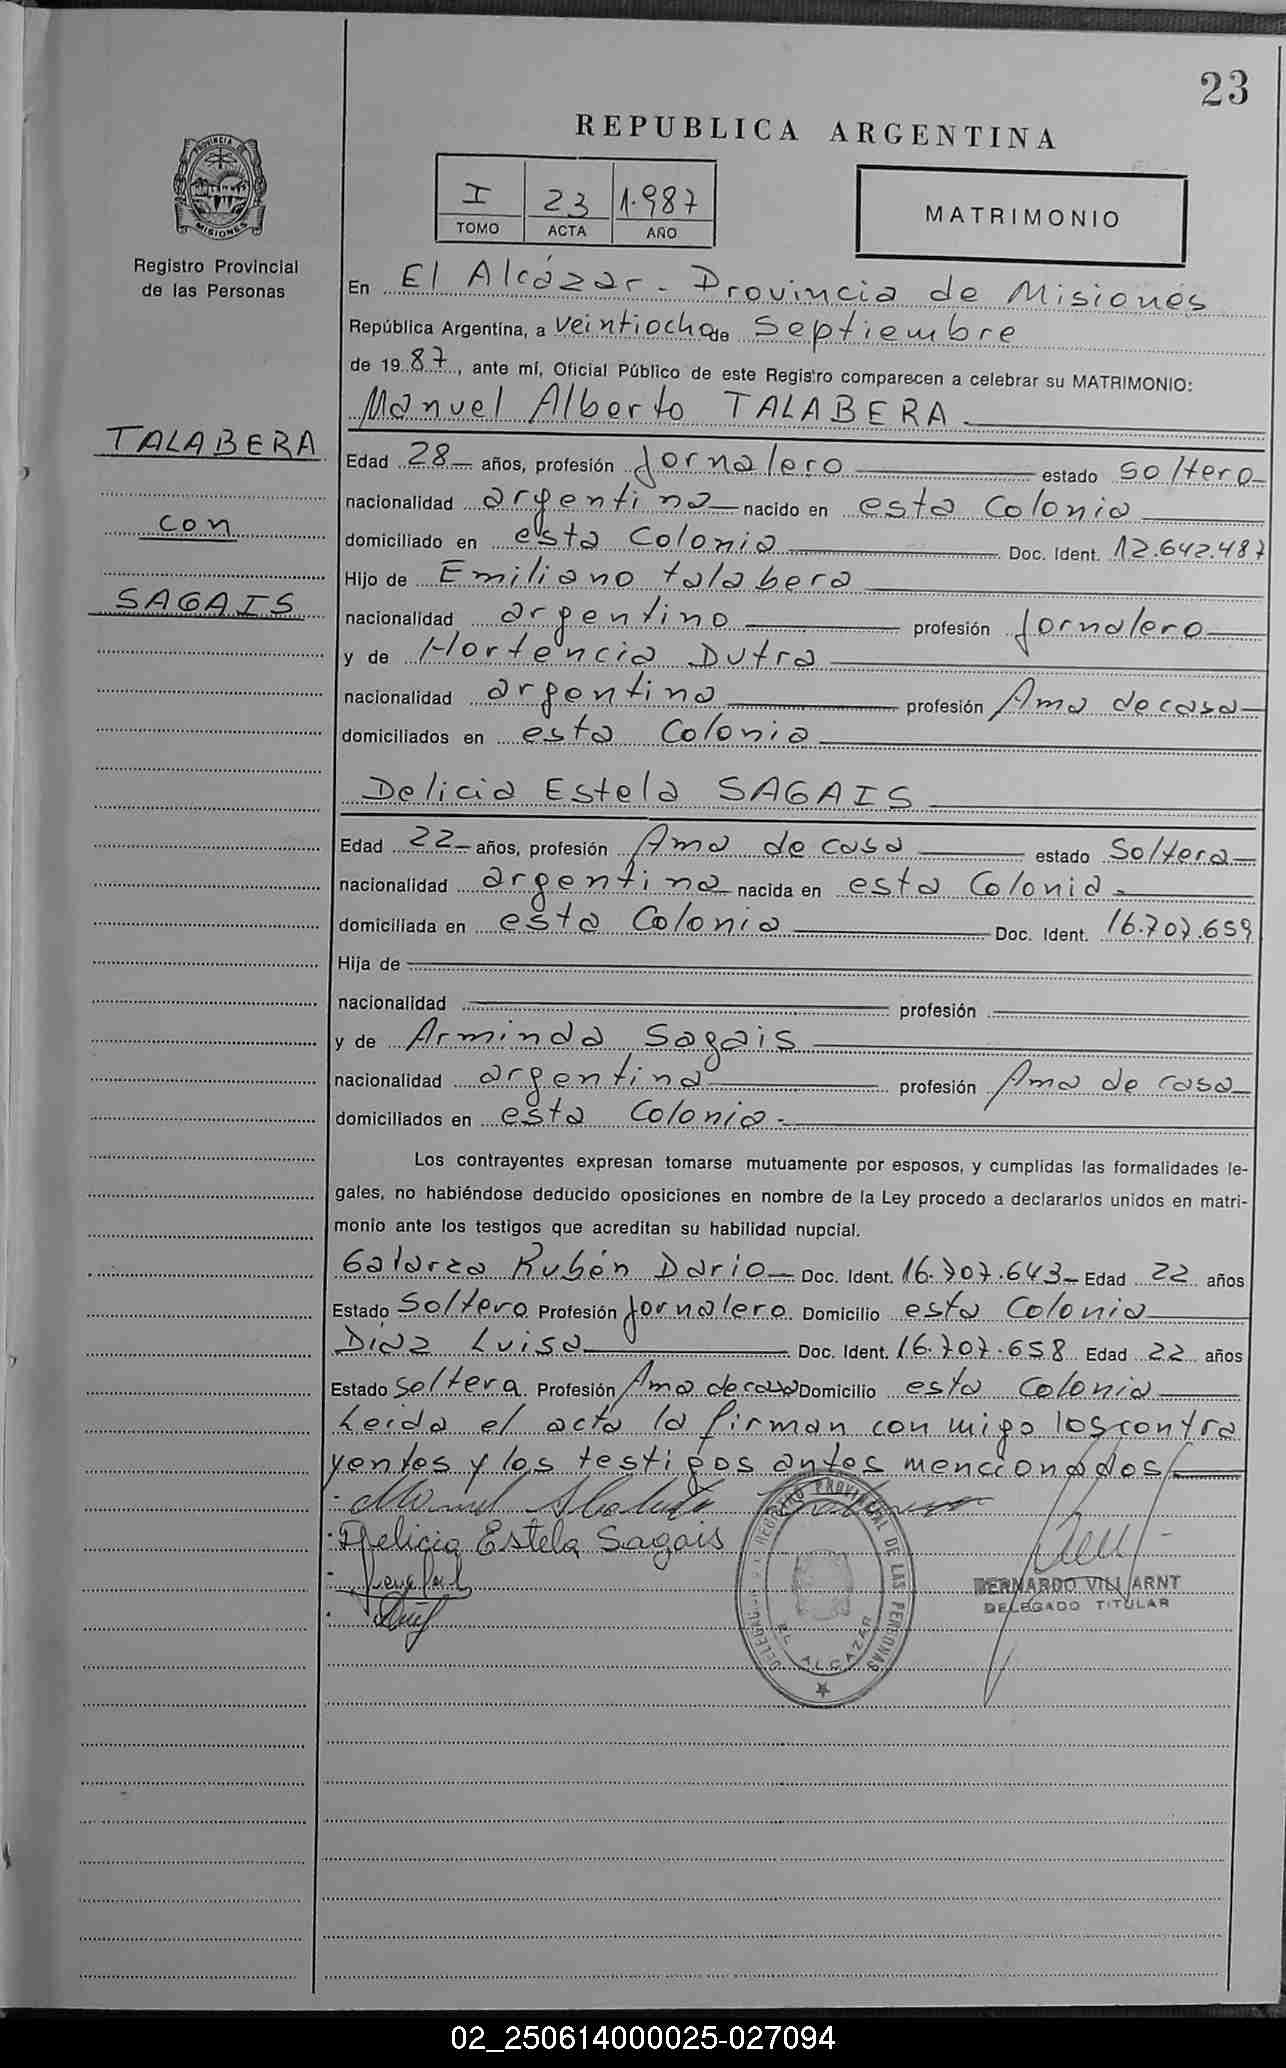 23
REPUBLICA ARGENTINA
I 23 1.987
TOMO ACTA AÑO
MATRIMONIO
PROVINCIA DE MISIONES
Registro Provincial
de las Personas
TALABERA
con
SAGAIS
En El Alcázar - Provincia de Misiones
República Argentina, a veintiocho de Septiembre
de 1987, ante mí, Oficial Público de este Registro comparecen a celebrar su MATRIMONIO:
Manuel Alberto TALABERA
Edad 28 años, profesión Jornalero estado soltero
nacionalidad argentina nacido en esta Colonia
domiciliado en esta Colonia Doc. Ident. 12.642.487
Hijo de Emiliano talabera
nacionalidad argentino profesión Jornalero
y de Hortencia Dutra
nacionalidad argentina profesión Ama de casa
domiciliados en esta Colonia
Delicia Estela SAGAIS
Edad 22 años, profesión Ama de casa estado Soltera
nacionalidad argentina nacida en esta Colonia
domiciliada en esta Colonia Doc. Ident. 16.707.659
Hija de
nacionalidad profesión
y de Arminda Sagais
nacionalidad argentina profesión Ama de casa
domiciliados en esta Colonia.
Los contrayentes expresan tomarse mutuamente por esposos, y cumplidas las formalidades le-
gales, no habiéndose deducido oposiciones en nombre de la Ley procedo a declararlos unidos en matri-
monio ante los testigos que acreditan su habilidad nupcial.
Galarza Rubén Dario Doc. Ident. 16.707.643 Edad 22 años
Estado Soltero Profesión Jornalero Domicilio esta Colonia
Diaz Luisa Doc. Ident. 16.707.658 Edad 22 años
Estado Soltera Profesión Ama de casa Domicilio esta Colonia
Leida el acta la firman con migo los contra
yentes y los testigos antes mencionados
Manuel Alberto
Delicia Estela Sagais
REGISTRO PROVINCIAL DE LAS PERSONAS
EL ALCAZAR
BERNARDO VILLARNT
DELEGADO TITULAR
02_250614000025-027094